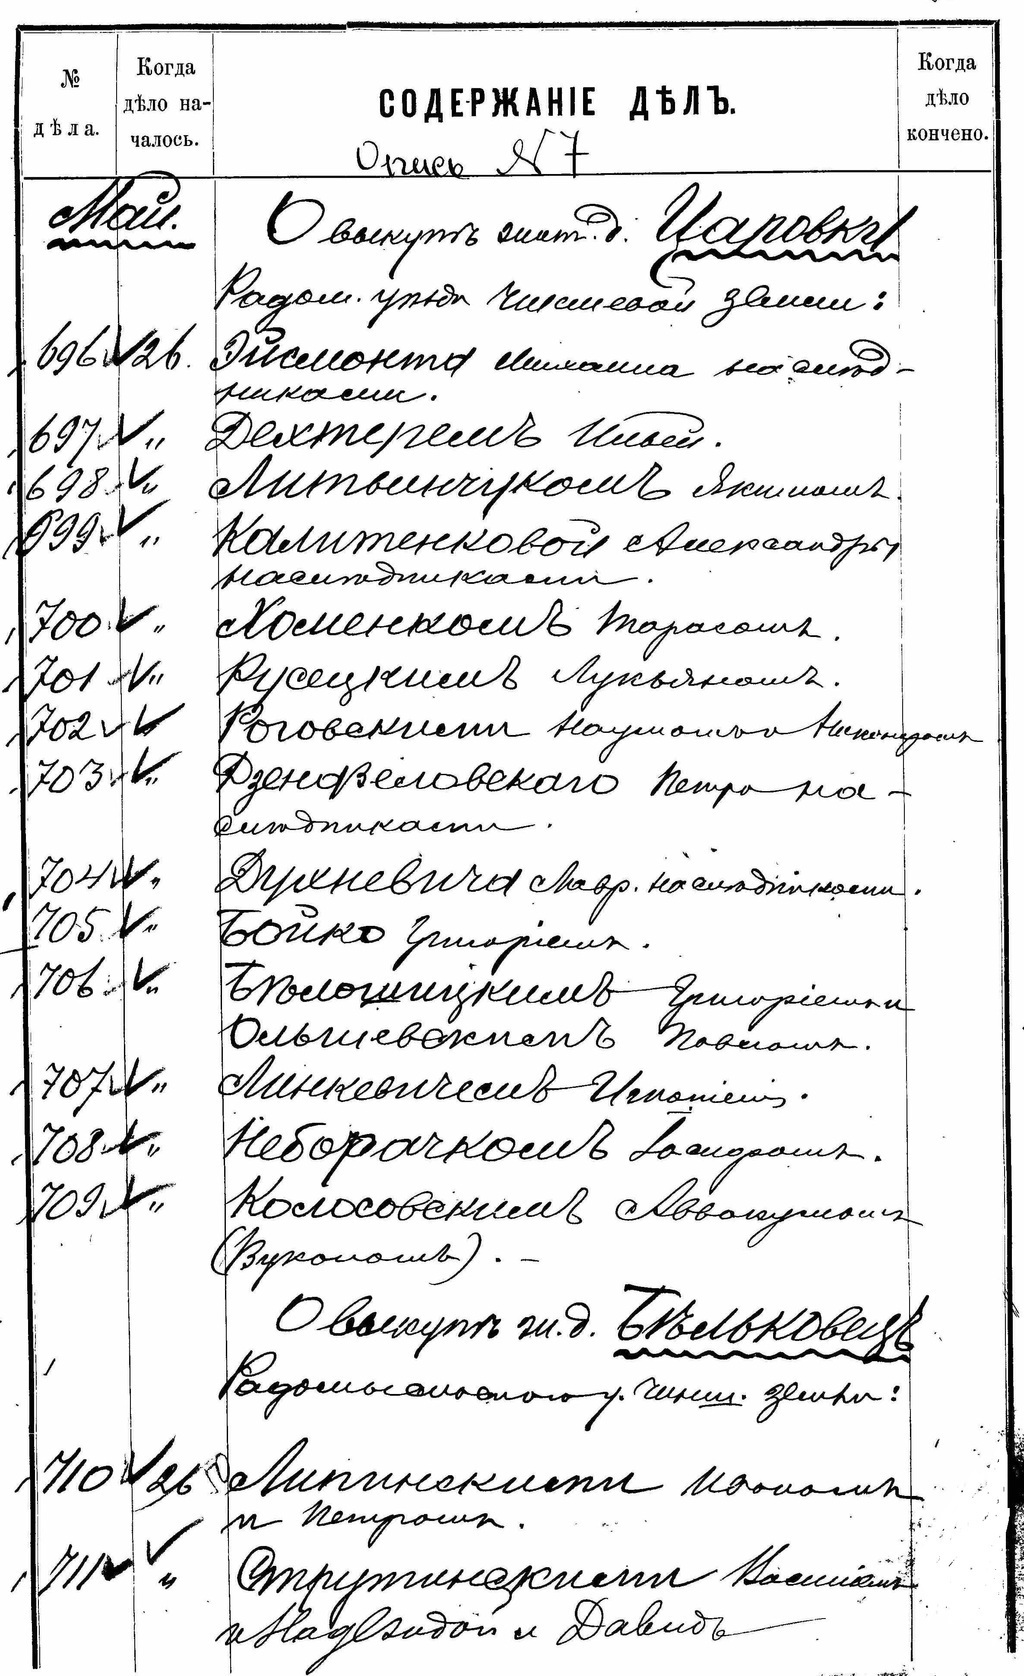 № дѣла. Когда дѣло началось. СОДЕРЖАНІЕ ДѢЛЪ. Когда дѣло кончено.
Опись N 7
Май. О выкупѣ жит. д. Царовки
Радом. уѣзда чиншевой земли:
696 26. Эйсмонта Михаила наслѣд-
никами.
697 " Дехтеремъ Ильей.
698 " Литвинчукомъ Якимомъ.
699 " Калитенковой Александры
наслѣдниками.
700 " Хоменкомъ Тарасомъ.
701 " Русецкимъ Лукьяномъ.
702 " Роговскими Наумомъ и Никандромъ
703 " Дзенфеловскаго Петра на-
слѣдниками.
704 " Духневича Лавр. наслѣдниками.
705 " Бойко Григоріемъ.
706 " Бѣлошицкимъ Григоріемъ и
Ольшевскимъ Павломъ.
707 " Линкевичемъ Игнатіемъ.
708 " Неборачкомъ Іосифомъ.
709 " Колосовскимъ Аввакумомъ
(Вуколомъ). -
О выкупѣ ж. д. Бѣльковецъ
Радомысльскаго у. чинш. земли:
710 26 Липинскими
и Петромъ.
711 " Струтинскими Василіемъ
и Надеждой и Давидъ